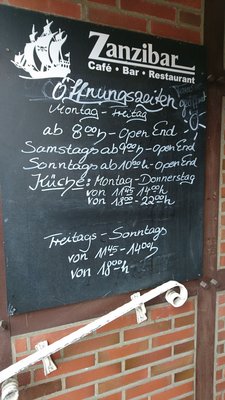 Zanzibar
Café • Bar • Restaurant
Öffnungszeiten
Montag - Freitag
ab 8 00 h - Open End
Samstags ab 9 00 h - Open End
Sonntags ab 10 00 h - Open End
Küche: Montag - Donnerstag
von 11 45 - 14 00 h
von 18 00 - 22 00 h
Freitags - Sonntags
von 11 45 - 14 00 h
von 18 00 h